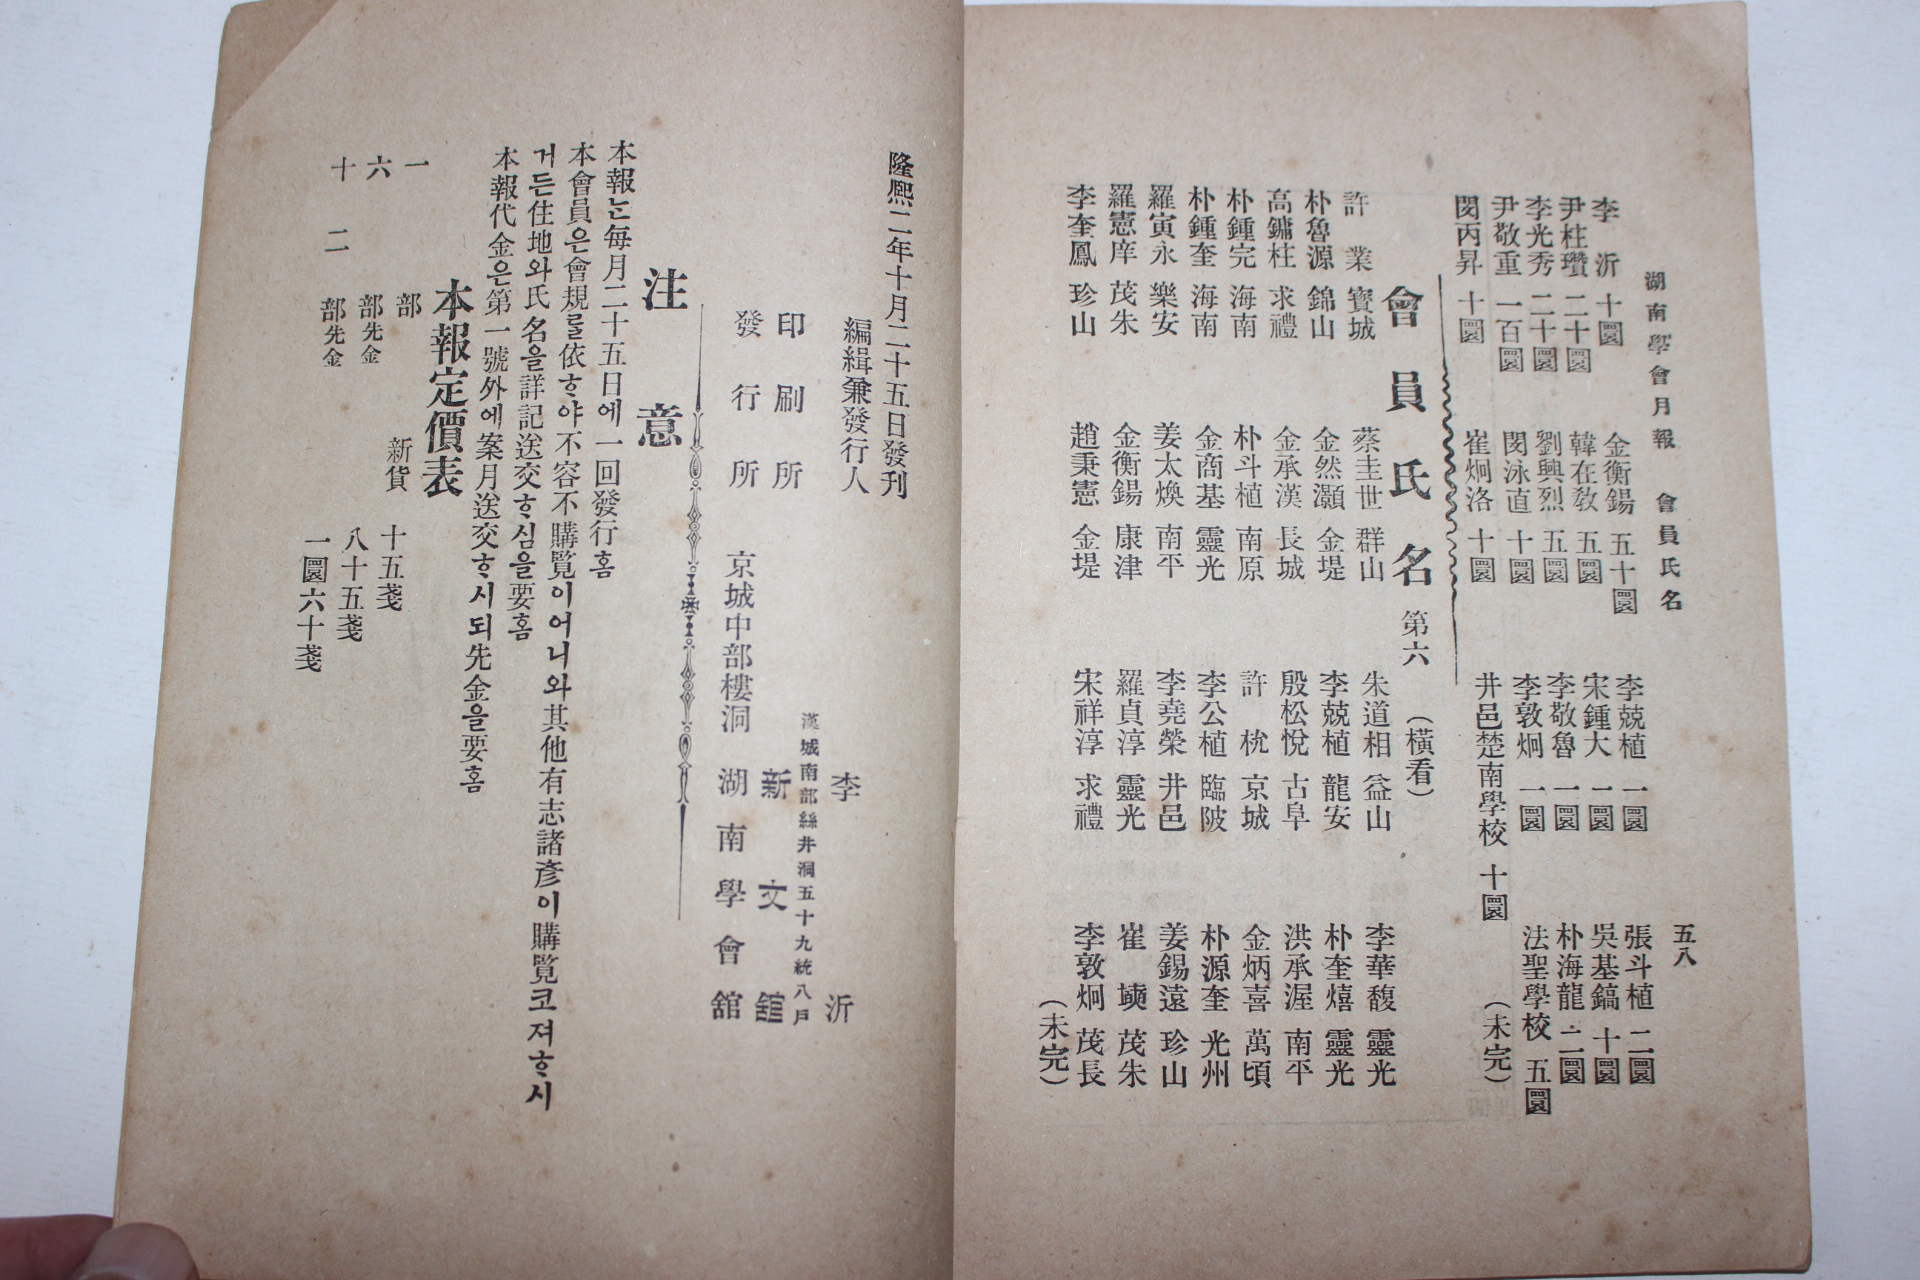 湖南學會月報 會員氏名 五八
李沂 十圜 金衡錫 五十圜 李兢植 一圜 張斗植 二圜
尹柱瓚 二十圜 韓在敎 五圜 宋鍾大 一圜 吳基鎬 十圜
李光秀 二十圜 劉興烈 五圜 李敬魯 一圜 朴海龍 二圜
尹敬重 一百圜 閔泳直 十圜 李敦炯 一圜 法聖學校 五圜
閔丙昇 十圜 崔炯洛 十圜 井邑楚南學校 十圜 (未完)
會員氏名 第六 (橫看)
許業 寶城 蔡圭世 群山 朱道相 益山 李華馥 靈光
朴魯源 錦山 金然灝 金堤 李兢植 龍安 朴奎熺 靈光
高鏞柱 求禮 金承漢 長城 殷松悅 古阜 洪承渥 南平
朴鍾完 海南 朴斗植 南原 許杬 京城 金炳喜 萬頃
朴鍾奎 海南 金商基 靈光 李公植 臨陂 朴源奎 光州
羅寅永 樂安 姜太煥 南平 李堯榮 井邑 姜錫遠 珍山
羅憲庠 茂朱 金衡錫 康津 羅貞淳 靈光 崔 茂朱
李奎鳳 珍山 趙秉憲 金堤 宋祥淳 求禮 李敦炯 茂長
(未完)
隆熙二年十月二十五日發刊
編緝兼發行人 李沂
漢城南部絲井洞五十九統八戶
印刷所 新文舘
發行所 京城中部樓洞 湖南學會舘
注意
本報는每月二十五日에一回發行홈
本會員은會規를依ᄒᆞ야不容不購覽이어니와其他有志諸彥이購覽코져ᄒᆞ시
거든住地와氏名을詳記送交ᄒᆞ심을要홈
本報代金은第一號外에案月送交ᄒᆞ시되先金을要홈
本報定價表
一部 新貨 十五戔
六部先金 八十五戔
十二部先金 一圜六十戔